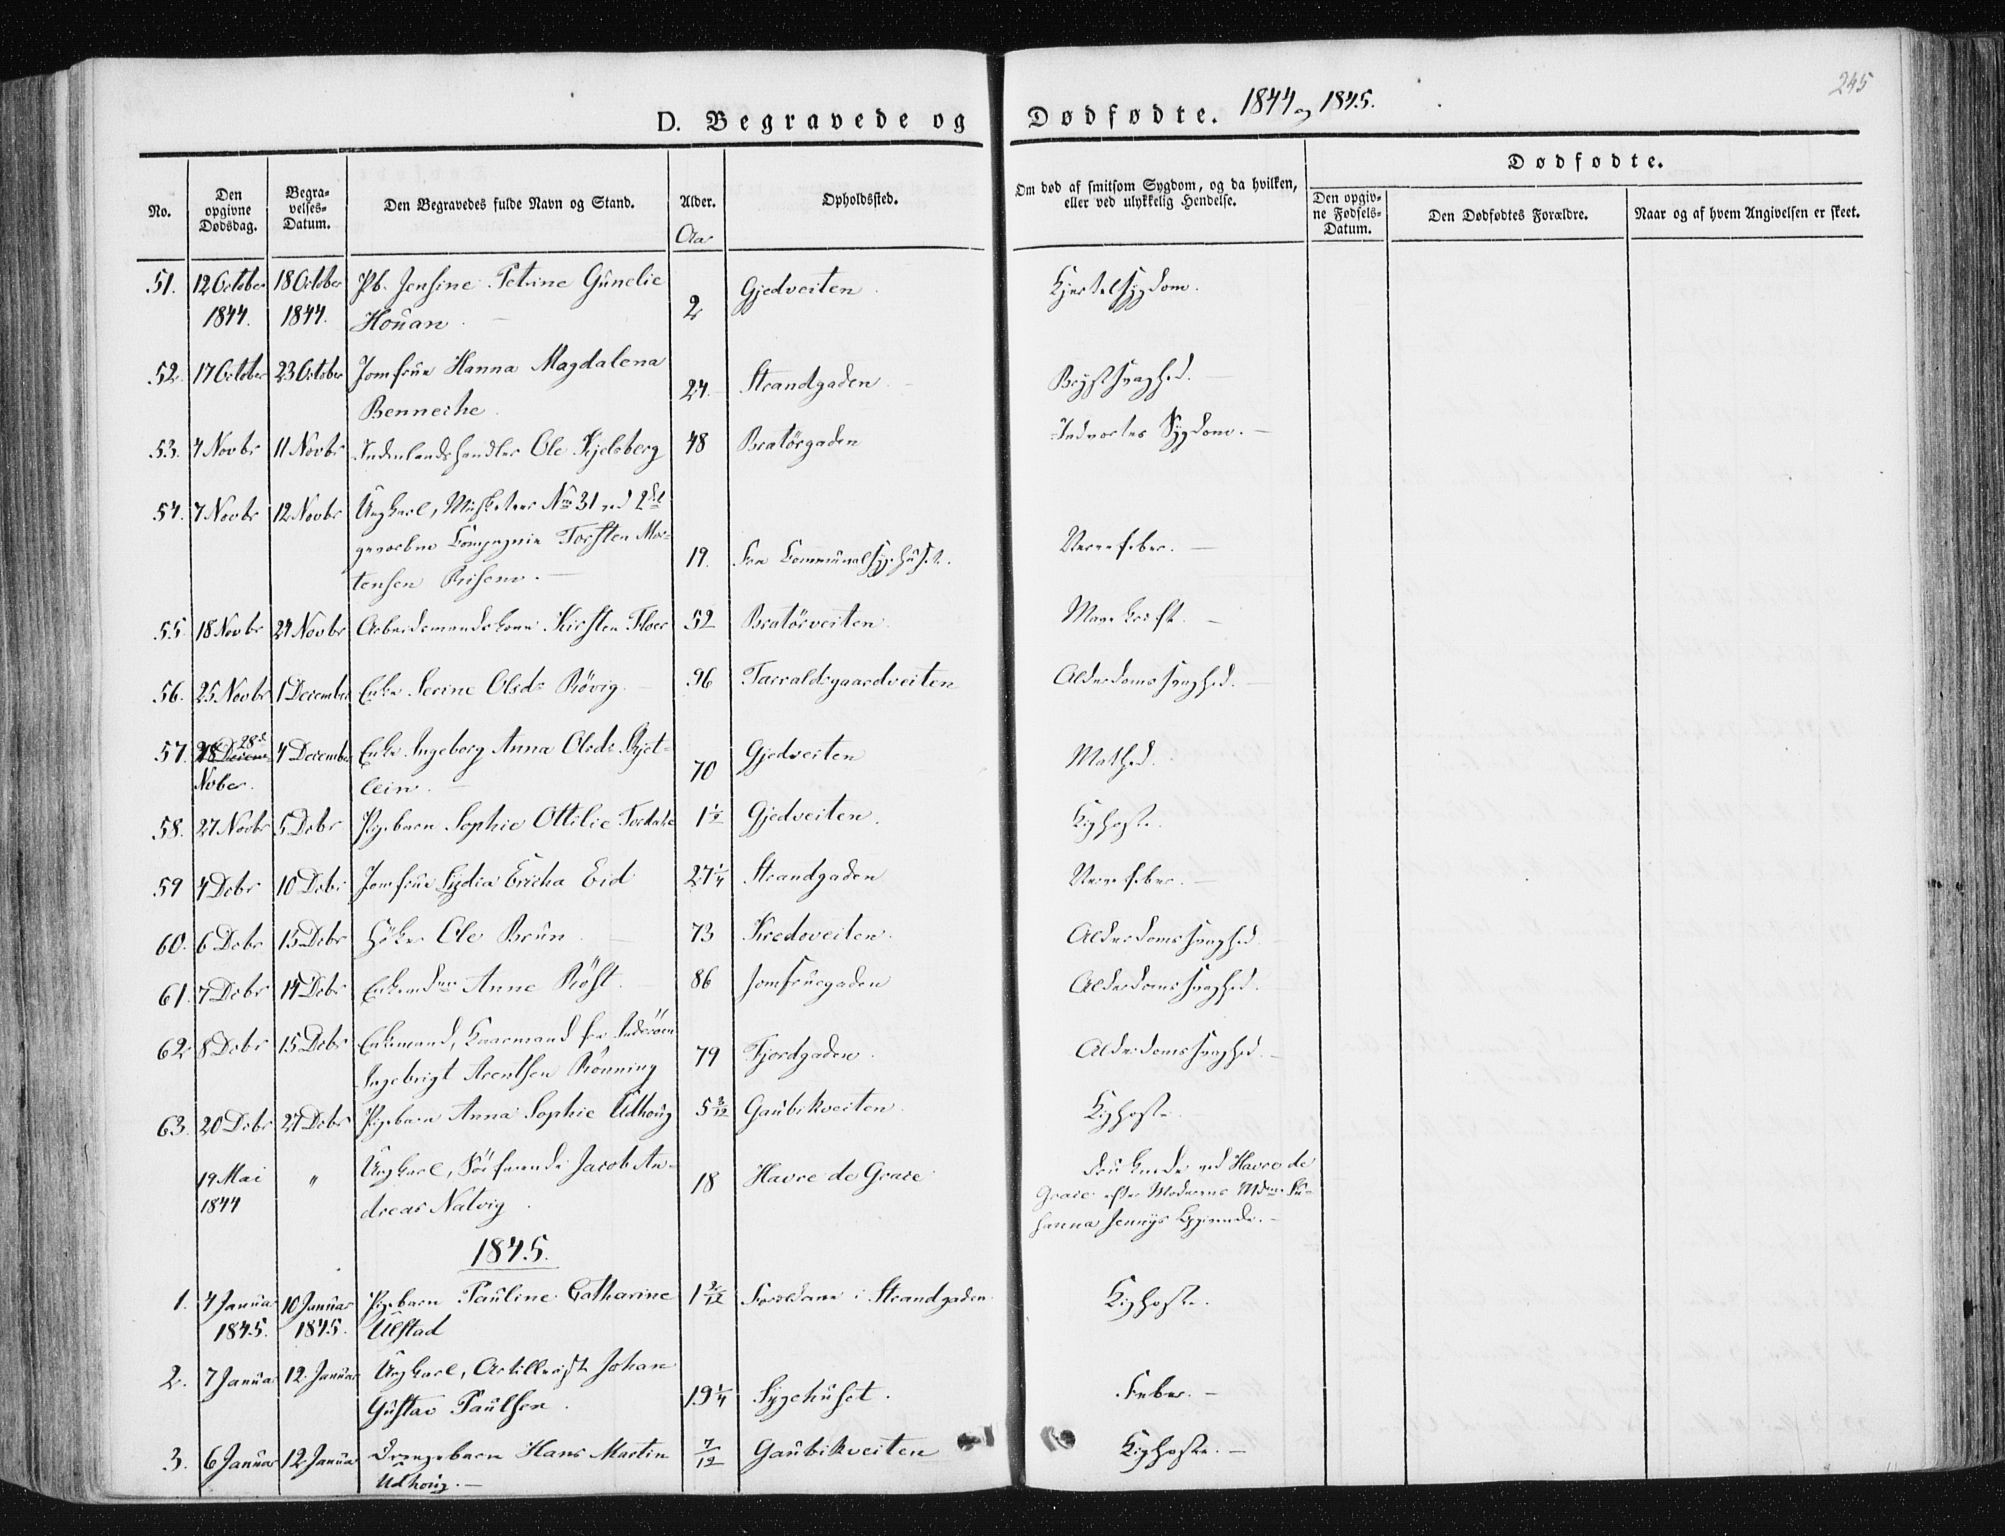 245
D. Begravede og Dødfødte. 1844 og 1845.
No.
Den opgivne Dødsdag.
Begravelses-Datum.
Den Begravedes fulde Navn og Stand.
Alder.
Aar
Opholdssted.
Om død af smitsom Sygdom, og da hvilken, eller ved ulykkelig Hendelse.
Dødfødte.
Den opgivne Fødsels-Datum.
Den Dødfødtes Forældre.
Naar og af hvem Angivelsen er skeet.
51. 12 October 18 October Pb. Jensine Petrine Gunelie 2 Gjedveiten. Kjertelsygdom.
1844. 1844. Houan.
52. 17 October 23 October Jomfrue Hanna Magdalena 24. Strandgaden. Brystsvaghed.
Benneche.
53. 4 Novbr 11 Novbr Indenlandshandler Ole Kjelsberg 48 Bratørgaden Indvortes Sygdom.
54. 7 Novbr 12 Novbr Ungkarl, Musketeer No 31 ved 2det
gevorbne Compagnie Torsten Mor- 19. Fra Communalsygehuset. Nervefeber.
tensen Risenv.
55 18 Novbr 24 Novbr Arbeidsmandskone Kirsten Floer 52 Bratörveiten. Mavekræft.
56. 25 Novbr 1 December Enke Serine Olsdr Rövig. 96 Tarraldsgaardveiten Alderdomssvaghed.
57. 28de 4 December Enke Ingeborg Anna Olsdr Kjet- 70 Gjedveiten Mathed.
Nober. lein.
58. 27 Novbr 5 Debr Pigebarn Sophie Ottilie 1 1/2 Gjedveiten. Kighoste.
59 4 Debr 10 Debr Jomfrue Lydia Ericha Eid 27 1/4 Strandgaden Nervefeber.
60. 6 Debr 15 Debr Höker Ole Brun 73 Kredoveiten. Alderdomssvaghed.
61. 7 Debr 14 Debr Anne Röst. 86 Jomfruegaden Alderdomssvaghed.
62 8 Debr 15 Debr Enkemand, Kaarmand fra Inderöen
Ingebrigt Arentsen Rönning 79 Fjordgaden. Alderdomssvaghed.
63. 20 Debr 27 Debr Pigebarn Anna Sophie Udhoug 5 3/12 Gaubikveiten. Kighoste.
19 Mai " Ungkarl, Söefarende Jacob An- 18 Havre de Grace Druknede ved Havre de
1844 dreas Natvig. Grace efter Moderens Mdme Su-
sanna Jennys Opgivende.
1845.
1. 4 Januar 10 Januar Pigebarn Pauline Catharine 1 2/12 Forældrene i Strandgaden. Kighoste.
1845. 1845. Ulstad
2. 7 Januar 12 Januar Ungkarl, Artillerist Johan
Gustav Paulsen. 19 1/4 Sygehuset. Feber.
3. 6 Januar 12 Januar Drengebarn Hans Martin 7/12 Gaubikveiten Kighoste.
Udhoug.